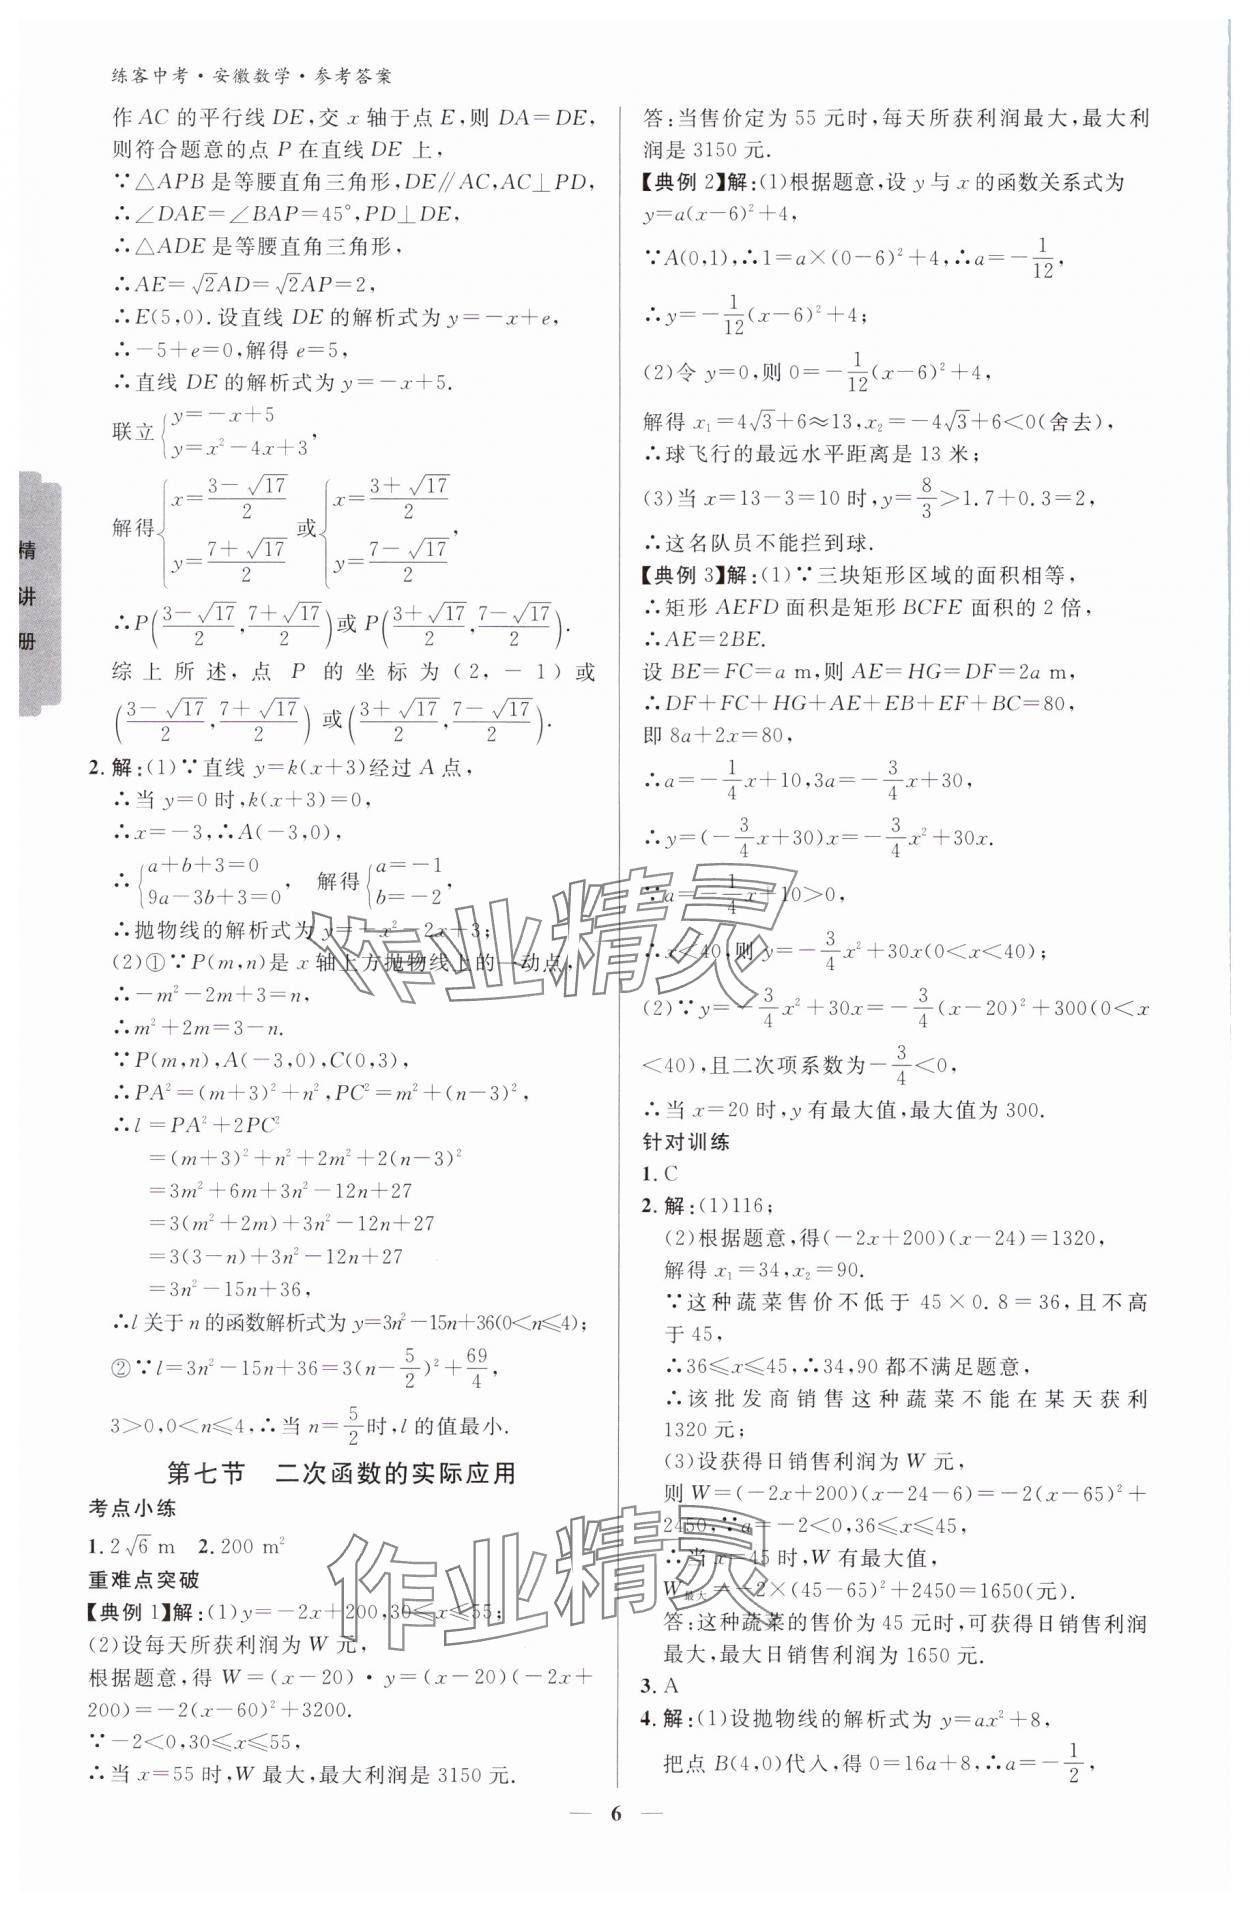 练客中考·安徽数学·参考答案
作 AC 的平行线 DE,交 x 轴于点 E,则 DA=DE,
则符合题意的点 P 在直线 DE 上,
∵△APB 是等腰直角三角形,DE∥AC,AC⊥PD,
∴∠DAE=∠BAP=45°,PD⊥DE,
∴△ADE 是等腰直角三角形,
∴AE=√2AD=√2AP=2,
∴E(5,0).设直线 DE 的解析式为 y=-x+e,
∴-5+e=0,解得 e=5,
∴直线 DE 的解析式为 y=-x+5.
联立{y=-x+5
y=x²-4x+3,
解得{x=(3-√17)/2 y=(7+√17)/2 或{x=(3+√17)/2 y=(7-√17)/2,
∴P((3-√17)/2,(7+√17)/2)或 P((3+√17)/2,(7-√17)/2).
综上所述,点 P 的坐标为(2,-1)或
((3-√17)/2,(7+√17)/2)或((3+√17)/2,(7-√17)/2).
2.解:(1)∵直线 y=k(x+3)经过 A 点,
∴当 y=0 时,k(x+3)=0,
∴x=-3,∴A(-3,0),
∴{a+b+3=0 9a-3b+3=0, 解得{a=-1 b=-2,
∴抛物线的解析式为 y=-x²-2x+3;
(2)①∵P(m,n)是 x 轴上方抛物线上的一动点,
∴-m²-2m+3=n,
∴m²+2m=3-n.
∵P(m,n),A(-3,0),C(0,3),
∴PA²=(m+3)²+n²,PC²=m²+(n-3)²,
∴l=PA²+2PC²
=(m+3)²+n²+2m²+2(n-3)²
=3m²+6m+3n²-12n+27
=3(m²+2m)+3n²-12n+27
=3(3-n)+3n²-12n+27
=3n²-15n+36,
∴l 关于 n 的函数解析式为 y=3n²-15n+36(0<n≤4);
②∵l=3n²-15n+36=3(n-5/2)²+69/4,
3>0,0<n≤4,∴当 n=5/2时,l 的值最小.
第七节 二次函数的实际应用
考点小练
1.2√6 m 2.200 m²
重难点突破
【典例 1】解:(1)y=-2x+200,30≤x≤55;
(2)设每天所获利润为 W 元,
根据题意,得 W=(x-20)·y=(x-20)(-2x+
200)=-2(x-60)²+3200.
∵-2<0,30≤x≤55,
∴当 x=55 时,W 最大,最大利润是 3150 元.
答:当售价定为 55 元时,每天所获利润最大,最大利
润是 3150 元.
【典例 2】解:(1)根据题意,设 y 与 x 的函数关系式为
y=a(x-6)²+4,
∵A(0,1),∴1=a×(0-6)²+4,∴a=-1/12,
∴y=-1/12(x-6)²+4;
(2)令 y=0,则 0=-1/12(x-6)²+4,
解得 x₁=4√3+6≈13,x₂=-4√3+6<0(舍去),
∴球飞行的最远水平距离是 13 米;
(3)当 x=13-3=10 时,y=8/3>1.7+0.3=2,
∴这名队员不能拦到球.
【典例 3】解:(1)∵三块矩形区域的面积相等,
∴矩形 AEFD 面积是矩形 BCFE 面积的 2 倍,
∴AE=2BE.
设 BE=FC=a m,则 AE=HG=DF=2a m,
∴DF+FC+HG+AE+EB+EF+BC=80,
即 8a+2x=80,
∴a=-1/4x+10,3a=-3/4x+30,
∴y=(-3/4x+30)x=-3/4x²+30x.
∵a=-1/4x+10>0,
∴x<40,则 y=-3/4x²+30x(0<x<40);
(2)∵y=-3/4x²+30x=-3/4(x-20)²+300(0<x
<40),且二次项系数为-3/4<0,
∴当 x=20 时,y 有最大值,最大值为 300.
针对训练
1.C
2.解:(1)116;
(2)根据题意,得(-2x+200)(x-24)=1320,
解得 x₁=34,x₂=90.
∵这种蔬菜售价不低于 45×0.8=36,且不高
于 45,
∴36≤x≤45,∴34,90 都不满足题意,
∴该批发商销售这种蔬菜不能在某天获利
1320 元;
(3)设获得日销售利润为 W 元,
则 W=(-2x+200)(x-24-6)=-2(x-65)²+
2450,∵a=-2<0,36≤x≤45,
∴当 x=45 时,W 有最大值,
W最大=-2×(45-65)²+2450=1650(元).
答:这种蔬菜的售价为 45 元时,可获得日销售利润
最大,最大利润为 1650 元.
3.A
4.解:(1)设抛物线的解析式为 y=ax²+8,
把点 B(4,0)代入,得 0=16a+8,∴a=-1/2,
精讲册
— 6 —
作业精灵
作业精灵